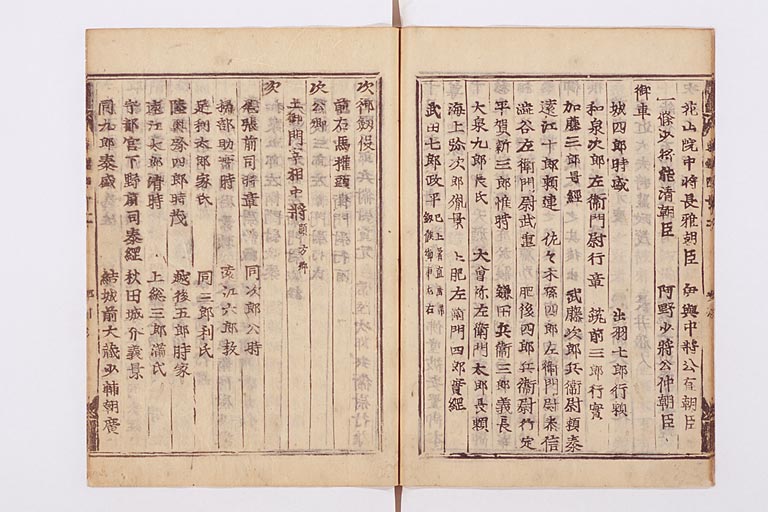 花山院中将長雅朝臣 伊與中将公直朝臣
一條少将能清朝臣 阿野少将公仲朝臣
御車
城四郎時盛 出羽七郎行頼
和泉次郎左衛門尉行章 筑前三郎行實
加藤三郎景經 武藤次郎兵衛尉頼泰
遠江十郎頼連 佐々木孫四郎左衛門尉泰信
澁谷左衛門尉武重 肥後四郎兵衛尉行定
平賀新三郎惟時 鎌田兵衛三郎義長
大泉九郎長氏 大曽祢左衛門太郎長頼
海上次郎胤景 土肥左衛門四郎實經
武田七郎政平 已上着直垂帯釼候御車左右
次 御釼役
前右馬權頭
次 公卿
土御門宰相中将 顕方卿
次
尾張前司時章 同次郎公時
掃部助 遠江六郎教
足利太郎家氏 同三郎利氏
陸奥四郎時茂 越後五郎時家
遠江太郎清時 上総三郎満氏
宇都宮下野前司泰經 秋田城介義景
同九郎泰盛 結城前大蔵少輔朝廣